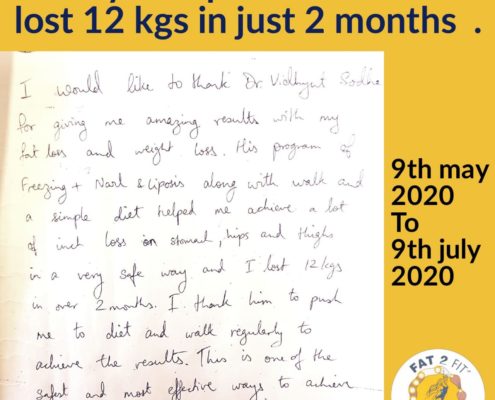 lost 12 kgs in just 2 months .
I would like to thank Dr. Vidhyut Sodha
for giving me amazing results with my
fat loss and weight loss. His program of
Freezing + Narl & Liposis along with walk and
a simple diet helped me achieve a lot
of inch loss on stomach, hips and thighs
in a very safe way and I lost 12 kgs
in over 2 months. I thank him to push
me to diet and walk regularly to
achieve the results. This is one of the
safest and most effective ways to achieve
9th may
2020
To
9th july
2020
FAT 2 FIT